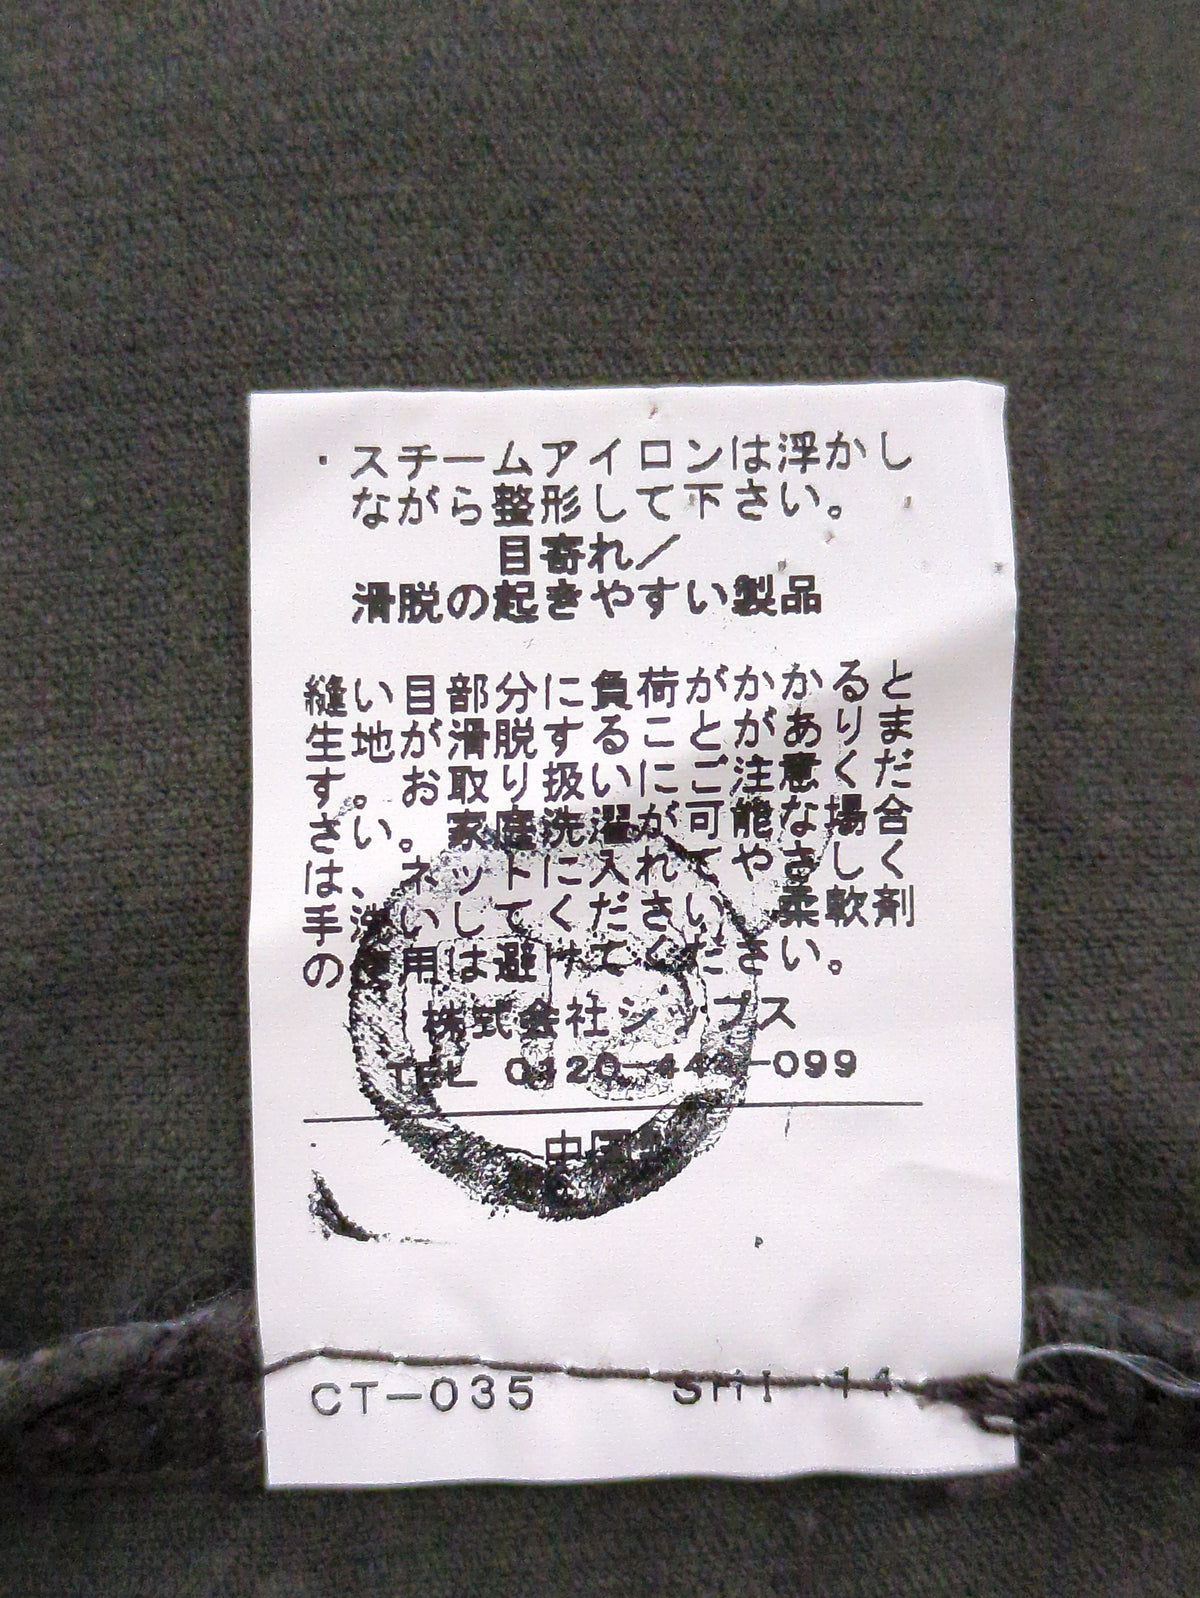 ・スチームアイロンは浮かし
ながら整形して下さい。
目寄れ／
滑脱の起きやすい製品
縫い目部分に負荷がかかると
生地が滑脱することがありま
す。お取り扱いにご注意くだ
さい。家庭洗濯が可能な場合
は、ネットに入れてやさしく
手洗いしてください。柔軟剤
の使用は避けてください。
株式会社シップス
TEL 0120-44-099
中国製
CT-035 SHI 14